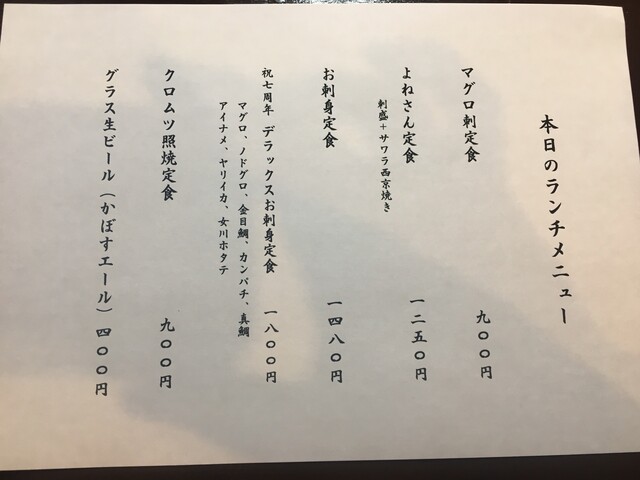 本日のランチメニュー
マグロ刺定食 九〇〇円
よねさん定食 一二五〇円
刺盛＋サワラ西京焼き
お刺身定食 一四八〇円
祝七周年 デラックスお刺身定食 一八〇〇円
マグロ、ノドグロ、金目鯛、カンパチ、真鯛
アイナメ、ヤリイカ、女川ホタテ
クロムツ照焼定食 九〇〇円
グラス生ビール（かぼすエール） 四〇〇円